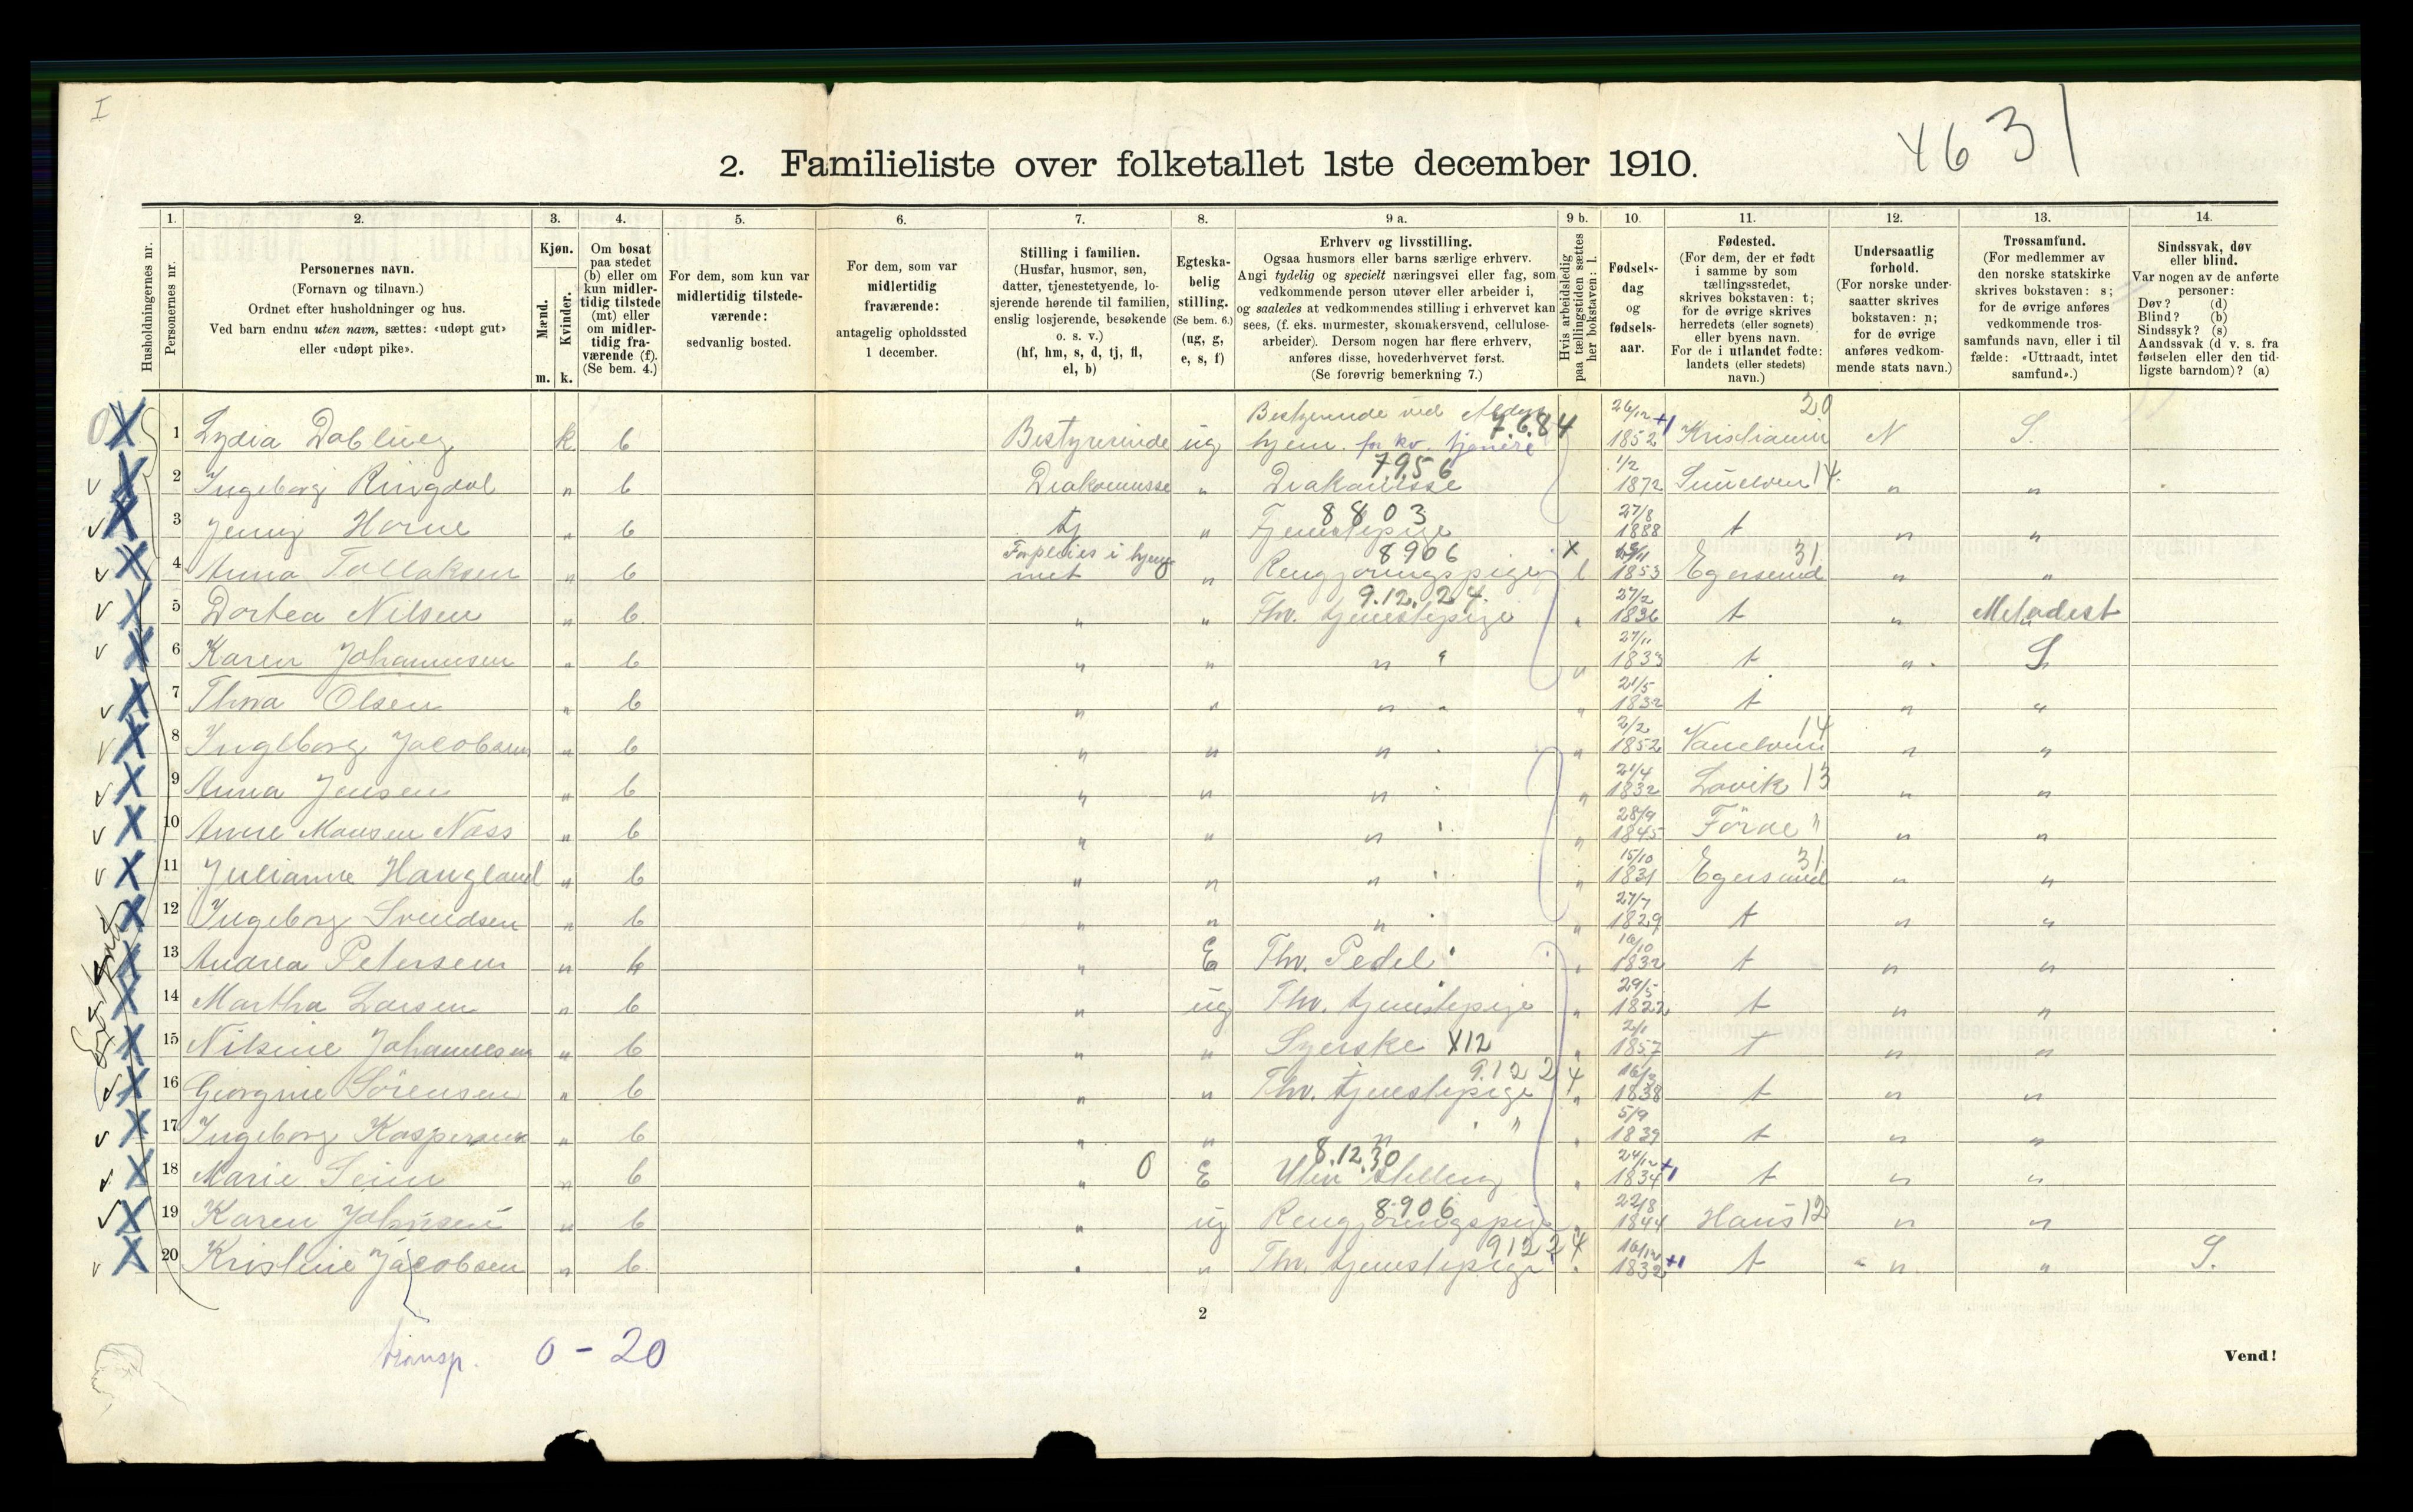 I
4631
2. Familieliste over folketallet 1ste december 1910.
Husholdningernes nr.
1.
Personernes nr.
2.
Personernes navn.
(Fornavn og tilnavn.)
Ordnet efter husholdninger og hus.
Ved barn endnu uten navn, sættes: «udøpt gut»
eller «udøpt pike».
3.
Kjøn.
Mænd.
Kvinder.
m. k.
4.
Om bosat
paa stedet
(b) eller om
kun midler-
tidig tilstede
(mt) eller
om midler-
tidig fra-
værende (f).
(Se bem. 4.)
5.
For dem, som kun var
midlertidig tilstede-
værende:
sedvanlig bosted.
6.
For dem, som var
midlertidig
fraværende:
antagelig opholdssted
1 december.
7.
Stilling i familien.
(Husfar, husmor, søn,
datter, tjenestetyende, lo-
sjerende hørende til familien,
enslig losjerende, besøkende
o. s. v.)
(hf, hm, s, d, tj, fl,
el, b)
8.
Egteska-
belig
stilling.
(Se bem. 6.)
(ug, g,
e, s, f)
9 a.
Erhverv og livsstilling.
Ogsaa husmors eller barns særlige erhverv.
Angi tydelig og specielt næringsvei eller fag, som
vedkommende person utøver eller arbeider i,
og saaledes at vedkommendes stilling i erhvervet kan
sees, (f. eks. murmester, skomakersvend, cellulose-
arbeider). Dersom nogen har flere erhverv,
anføres disse, hovederhvervet først.
(Se forøvrig bemerkning 7.)
9 b.
Hvis arbeidsledig
paa tællingstiden sættes
her bokstaven: l.
10.
Fødsels-
dag
og
fødsels-
aar.
11.
Fødested.
(For dem, der er født
i samme by som
tællingsstedet,
skrives bokstaven: t;
for de øvrige skrives
herredets (eller sognets)
eller byens navn.
For de i utlandet fødte:
landets (eller stedets)
navn.)
12.
Undersaatlig
forhold.
(For norske under-
saatter skrives
bokstaven: n;
for de øvrige
anføres vedkom-
mende stats navn.)
13.
Trossamfund.
(For medlemmer av
den norske statskirke
skrives bokstaven: s;
for de øvrige anføres
vedkommende tros-
samfunds navn, eller i til
fælde: «Uttraadt, intet
samfund».)
14.
Sindssvak, døv
eller blind.
Var nogen av de anførte
personer:
Døv? (d)
Blind? (b)
Sindssyk? (s)
Aandssvak (d. v. s. fra
fødselen eller den tid-
ligste barndom)? (a)
Bestyrerinde ved 7.6.84 26/12 20
1 Lydia k b Bestyrerinde ug hjem for kv. tjenere 1852 +1 Kristiania N S.
7956 1/2
2 Ingeborg Ringdal " b Diakonisse " Diakonisse 1872 14 " "
8803 27/8
3 Jenny Horne " b tj " Tjenestepige 1888 t " "
Forpleies i hjem 8906 X 31
4 Anna Tollaksen " b met " Rengjøringspige l 1853 Egersund " "
9.12.24. 27/2
5 Dortea Nilsen " b " " Fhv. tjenestepige " 1836 t " Metodist
27/11
6 Karen Johannesen " b " " " " " 1833 t " S.
21/5
7 Thora Olsen " b " " " " " 1832 t " "
2/2 14
8 Ingeborg Jacobsen " b " " " " 1852 " "
21/4
9 Anna Jensen " b " " " " 1832 Lavik 13 " "
28/9
10 Anne Monsen Næss " b " " " " 1845 Förde " " "
15/10 31
11 Julianne Haugland " b " " " " 1831 Egersund " "
27/7
12 Ingeborg Svendsen " b " " " " 1829 t " "
16/10
13 Andrea Petersen " b " E Fhv. Pedel " 1832 t " "
29/5
14 Martha Larsen " b " ug Fhv. tjenestepige " 1822 t " "
2/1
15 Nilsine Johannesen " b " " Syerske X12 " 1857 t " "
9.12 24 16/3
16 Georgine Sörensen " b " " Fhv. tjenestepige " 1838 t " "
5/9
17 Ingeborg Kaspersen " b " " " " " 1839 t " "
8.12.30 24/12
18 Marie Seim " b " 0 E Uten stilling " 1834 +1 t " "
8906 22/8
19 Karen Johnsen " b " ug Rengjøringspige " 1844 Haus 12 " "
91224 16/12
20 Kristine Jacobsen " b " " Fhv. tjenestepige " 1832 +1 t " " S.
2
transp. 0 - 20
Vend!